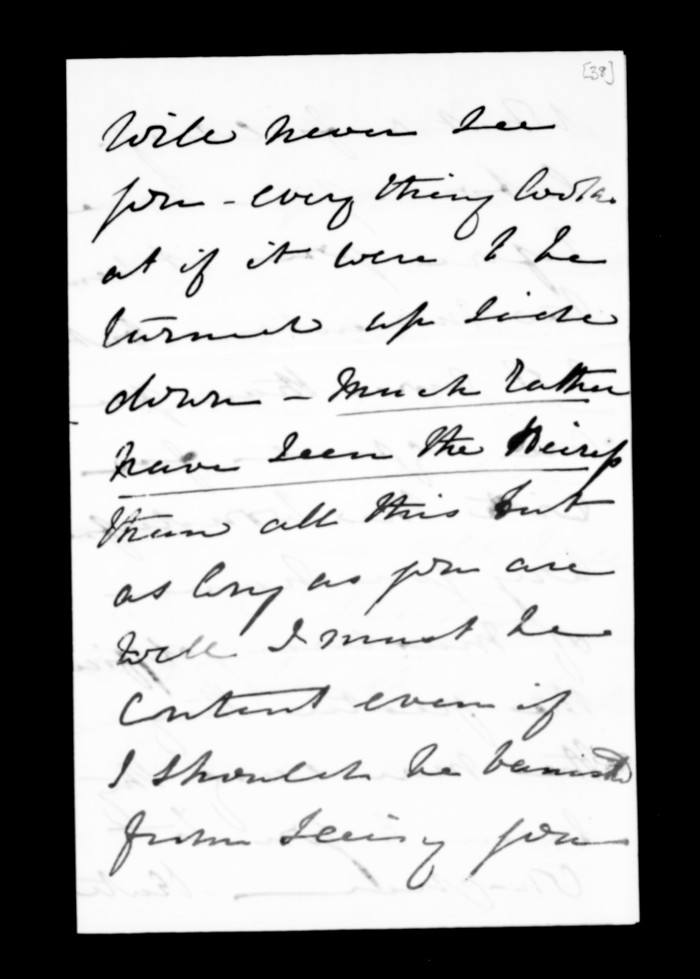 [38]
will never see
you - every thing looks
as if it were to be
turned up side
down - Much rather
have seen the
than all this but
as long as you are
well I must be
content even if
I should be banished
from seeing you